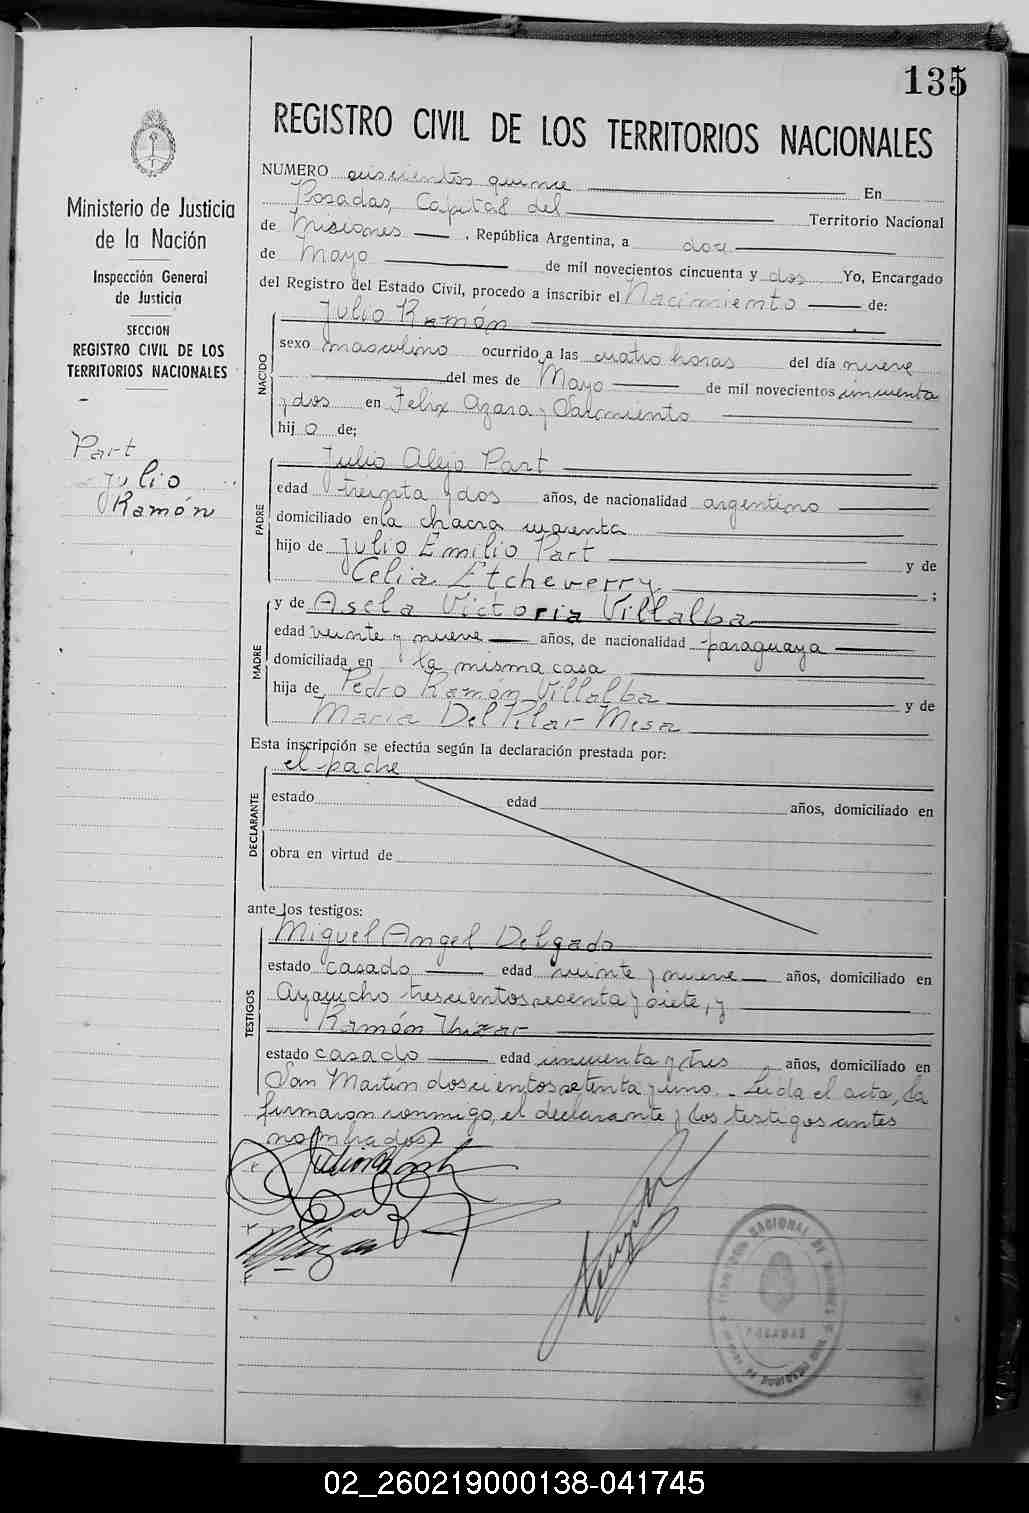 135
REGISTRO CIVIL DE LOS TERRITORIOS NACIONALES
Ministerio de Justicia
de la Nación
Inspección General
de Justicia
SECCION
REGISTRO CIVIL DE LOS
TERRITORIOS NACIONALES
Part
Julio
Ramón
NUMERO seiscientos quince En
Posadas, Capital del Territorio Nacional
de Misiones, República Argentina, a doce
de Mayo de mil novecientos cincuenta y dos Yo, Encargado
del Registro del Estado Civil, procedo a inscribir el Nacimiento de:
NACIDO
Julio Ramón
sexo masculino ocurrido a las cuatro horas del día nueve
del mes de Mayo de mil novecientos cincuenta
y dos en Felix Azara y Sarmiento
hijo de;
PADRE
Julio Alejo Part
edad treinta y dos años, de nacionalidad argentino
domiciliado en la chacra cuarenta
hijo de Julio Emilio Part y de
Celia Etcheverry ;
MADRE
y de Asela Victoria Villalba
edad veinte y nueve años, de nacionalidad paraguaya
domiciliada en la misma casa
hija de Pedro Ramón Villalba y de
Maria Del Pilar Mesa
Esta inscripción se efectúa según la declaración prestada por:
DECLARANTE
el padre
estado edad años, domiciliado en
obra en virtud de
ante los testigos:
TESTIGOS
Miguel Angel Delgado
estado casado edad veinte y nueve años, domiciliado en
Ayacucho trescientos sesenta y siete, y
Ramón
estado casado edad cincuenta y tres años, domiciliado en
San Martín doscientos setenta y uno. Leida el acta, la
firmaron conmigo, el declarante y los testigos antes
nombrados
POSADAS
02_260219000138-041745